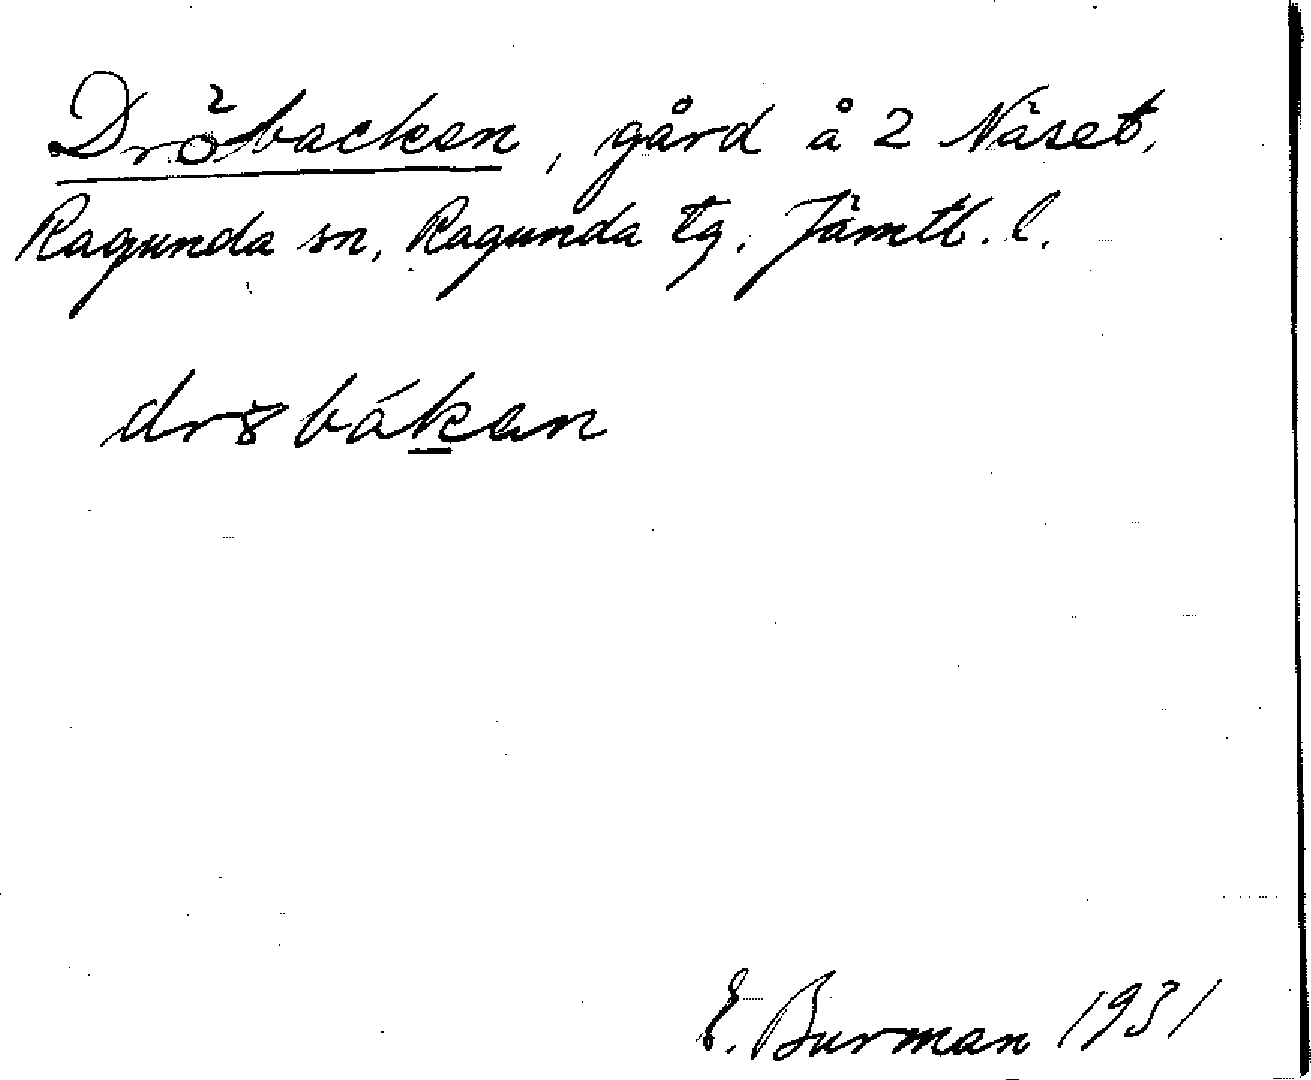 Dröbacken, gård å 2 Näset,
Ragunda sn, Ragunda tg. Jämtl. l.
E. Burman 1931